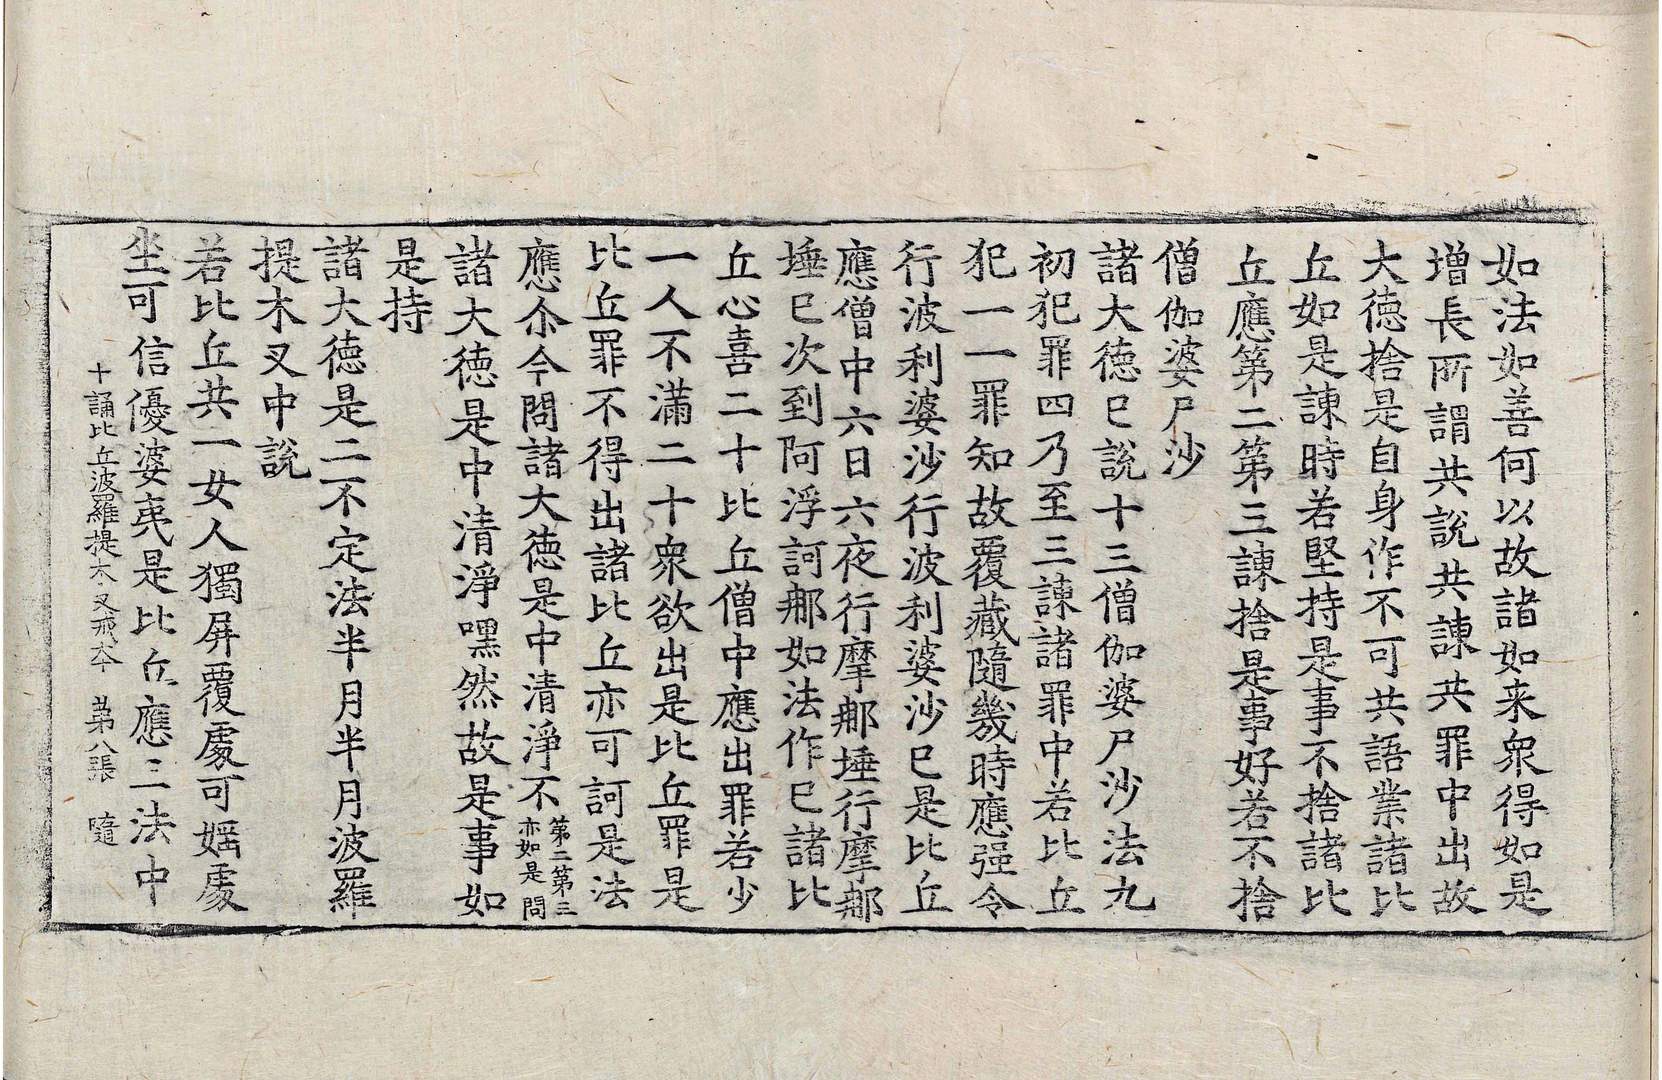 如法如善何以故諸如来衆得如是
増長所謂共說共諫共罪中出故
大德捨是自身作不可共語業諸比
丘如是諫時若堅持是事不捨諸比
丘應第二第三諫捨是事好若不捨
僧伽婆尸沙
諸大德已說十三僧伽婆尸沙法九
初犯罪四乃至三諫諸罪中若比丘
犯一一罪知故覆藏隨幾時應强令
行波利婆沙行波利婆沙已是比丘
應僧中六日六夜行摩那埵行摩那
埵已次到阿浮訶那如法作已諸比
丘心喜二十比丘僧中應出罪若少
一人不滿二十衆欲出是比丘罪是
比丘罪不得出諸比丘亦可訶是法
應尒今問諸大德是中清淨不第二第三亦如是問
諸大德是中清淨嘿然故是事如
是持
諸大德是二不定法半月半月波羅
提木叉中說
若比丘共一女人獨屏覆處可婬處
坐可信優婆夷是比丘應三法中
十誦比丘波羅提木叉戒本 第八張 隨